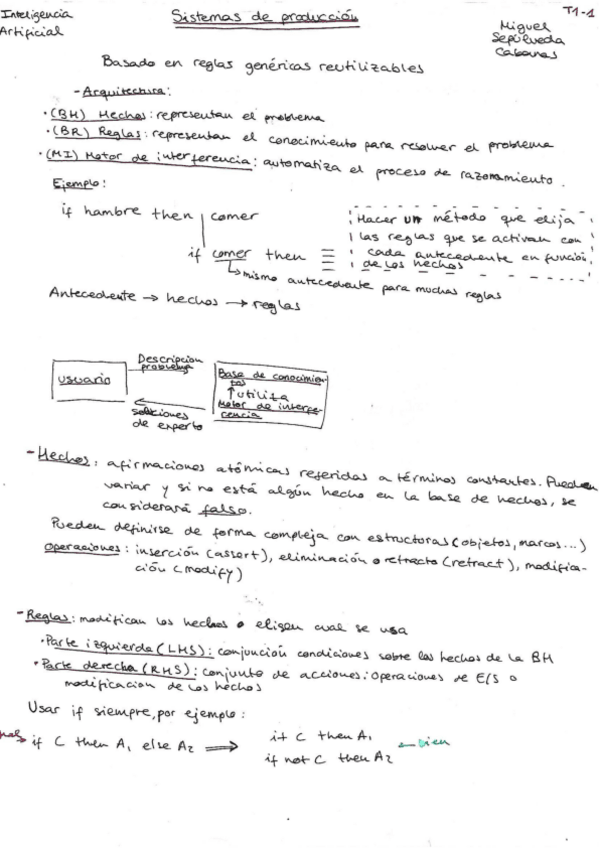 Inteligencia Artificial
Sistemas de producción
T1-1
Miguel Sepúlveda Cabanas
Basado en reglas genéricas reutilizables
- Arquitectura:
· (BH) Hechos: representan el problema
· (BR) Reglas: representan el conocimiento para resolver el problema
· (MI) Motor de interferencia: automatiza el proceso de razonamiento.
Ejemplo:
if hambre then | comer
if comer then
mismo antecedente para muchas reglas
Hacer un método que elija
las reglas que se activan con
cada antecedente en función
de los hechos
Antecedente → hechos → reglas
usuario
Descripcion
problema
soluciones
de experto
Base de conocimientos
↑ utiliza
Motor de interferencia
- Hechos: afirmaciones atómicas referidas a términos constantes. Pueden
variar y si no está algún hecho en la base de hechos, se
considerará falso.
Pueden definirse de forma compleja con estructuras (objetos, marcos...)
Operaciones: inserción (assert), eliminación o retracto (retract), modifica-
ción (modify)
- Reglas: modifican los hechos o eligen cual se usa
· Parte izquierda (LHS): conjunción condiciones sobre los hechos de la BH
· Parte derecha (RHS): conjunto de acciones: Operaciones de E/S o
modificacion de los hechos
Usar if siempre, por ejemplo:
if C then A1 else A2 ⟹ if C then A1 ← bien
if not C then A2